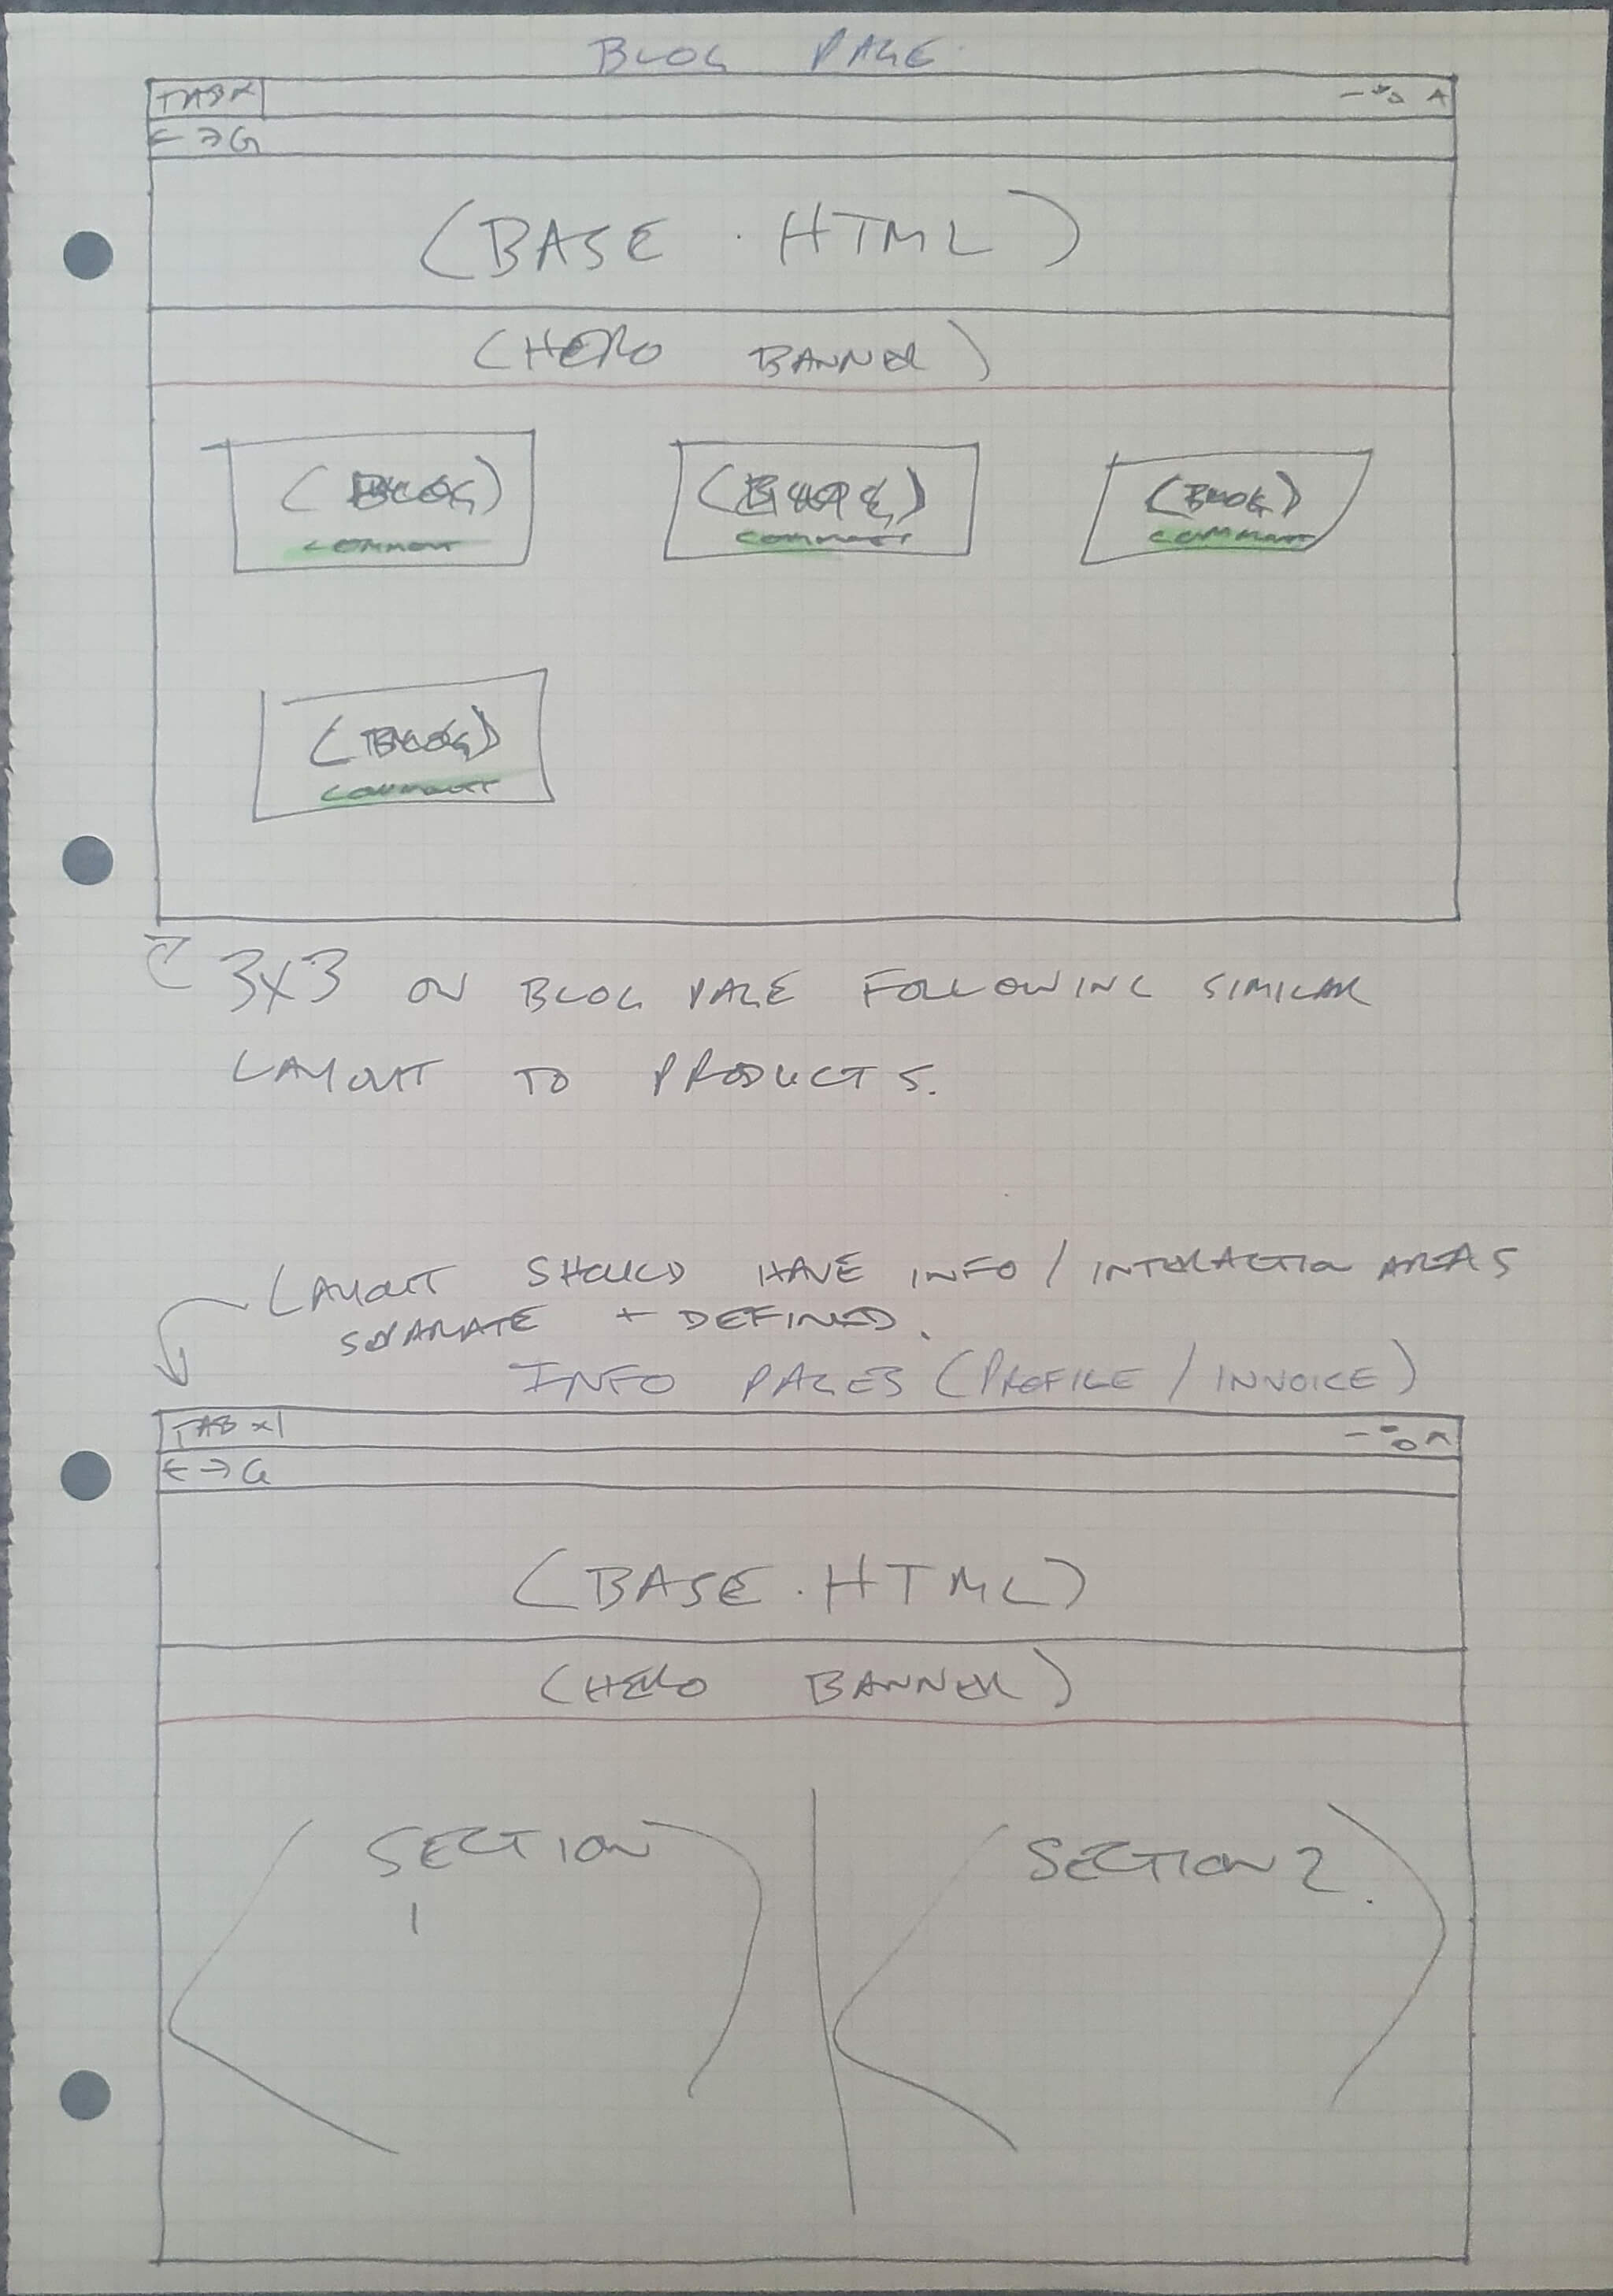 BLOG PAGE
TAB X
← → G
(BASE.HTML)
(HERO BANNER)
(BLOG) (BLOG) (BLOG)
COMMENT COMMENT COMMENT
(BLOG)
COMMENT
3X3 ON BLOG PAGE FOLLOWING SIMILAR
LAYOUT TO PRODUCTS.
LAYOUT SHOULD HAVE INFO / INTERACTION AREAS
SEPARATE + DEFINED.
INFO PAGES (PROFILE / INVOICE)
TAB X
← → G
(BASE.HTML)
(HERO BANNER)
(SECTION) (SECTION 2.)
1